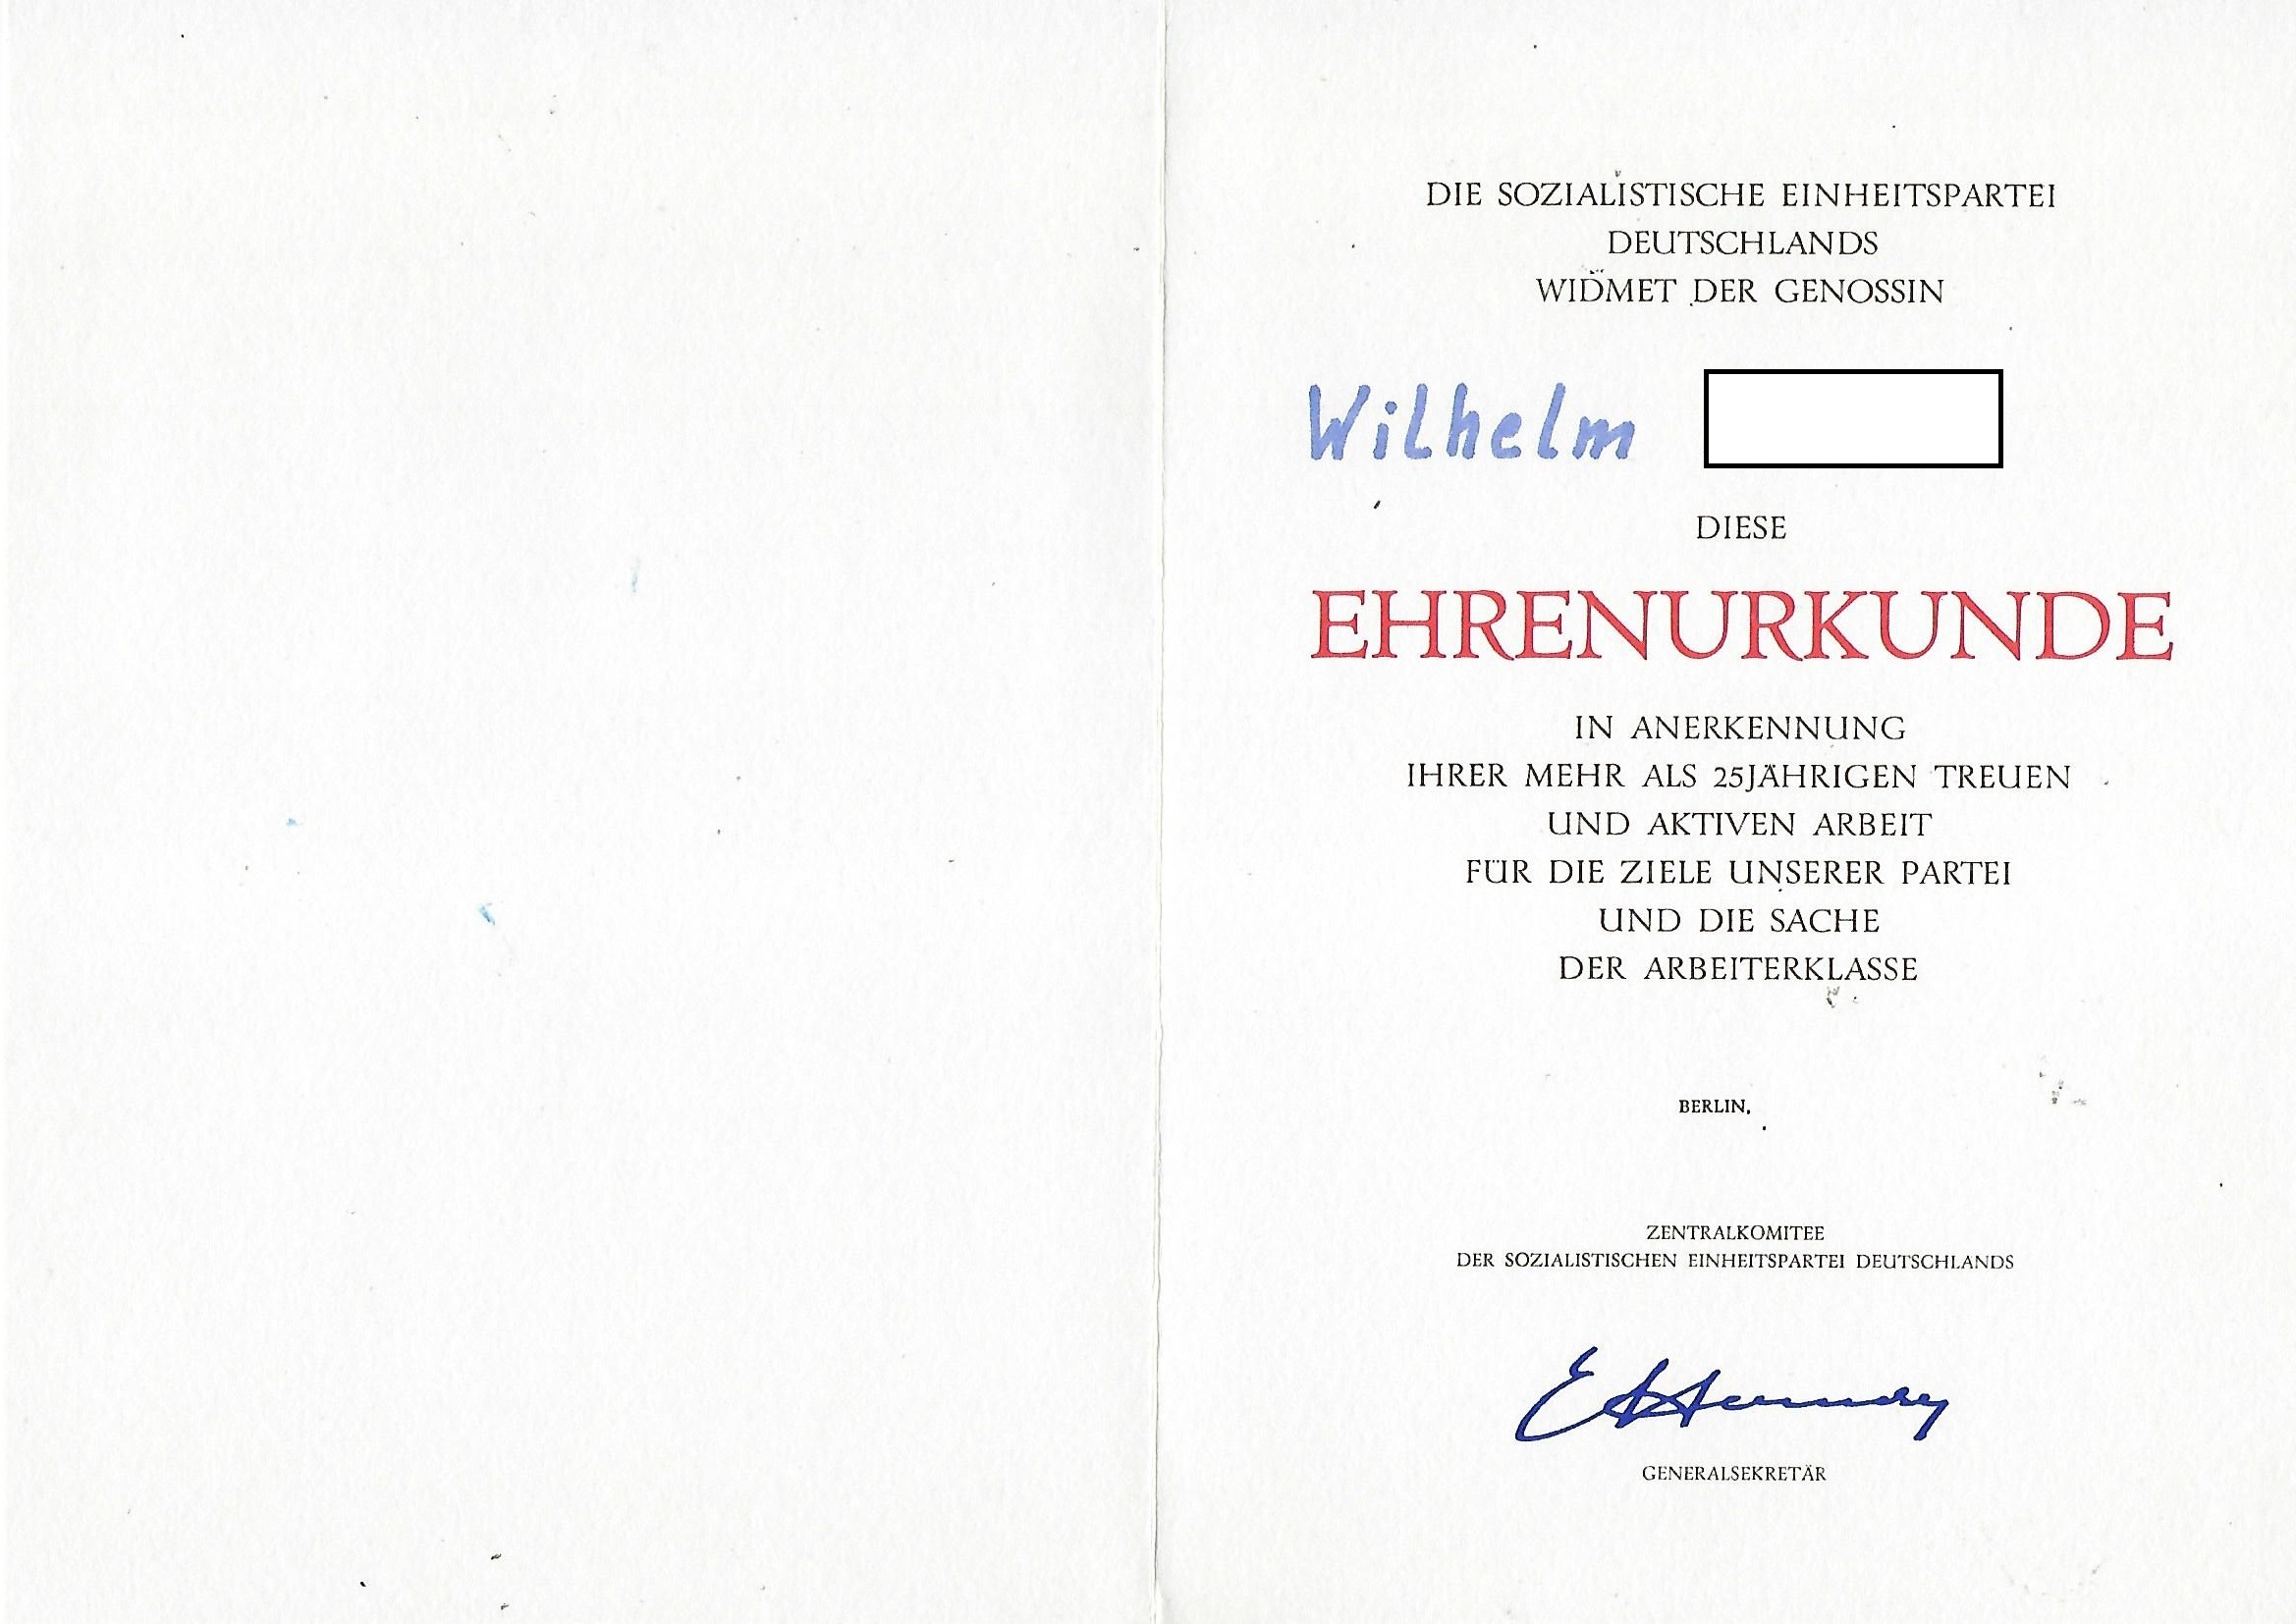 DIE SOZIALISTISCHE EINHEITSPARTEI
DEUTSCHLANDS
WIDMET DER GENOSSIN
Wilhelm
DIESE
EHRENURKUNDE
IN ANERKENNUNG
IHRER MEHR ALS 25JÄHRIGEN TREUEN
UND AKTIVEN ARBEIT
FÜR DIE ZIELE UNSERER PARTEI
UND DIE SACHE
DER ARBEITERKLASSE
BERLIN,
ZENTRALKOMITEE
DER SOZIALISTISCHEN EINHEITSPARTEI DEUTSCHLANDS
GENERALSEKRETÄR